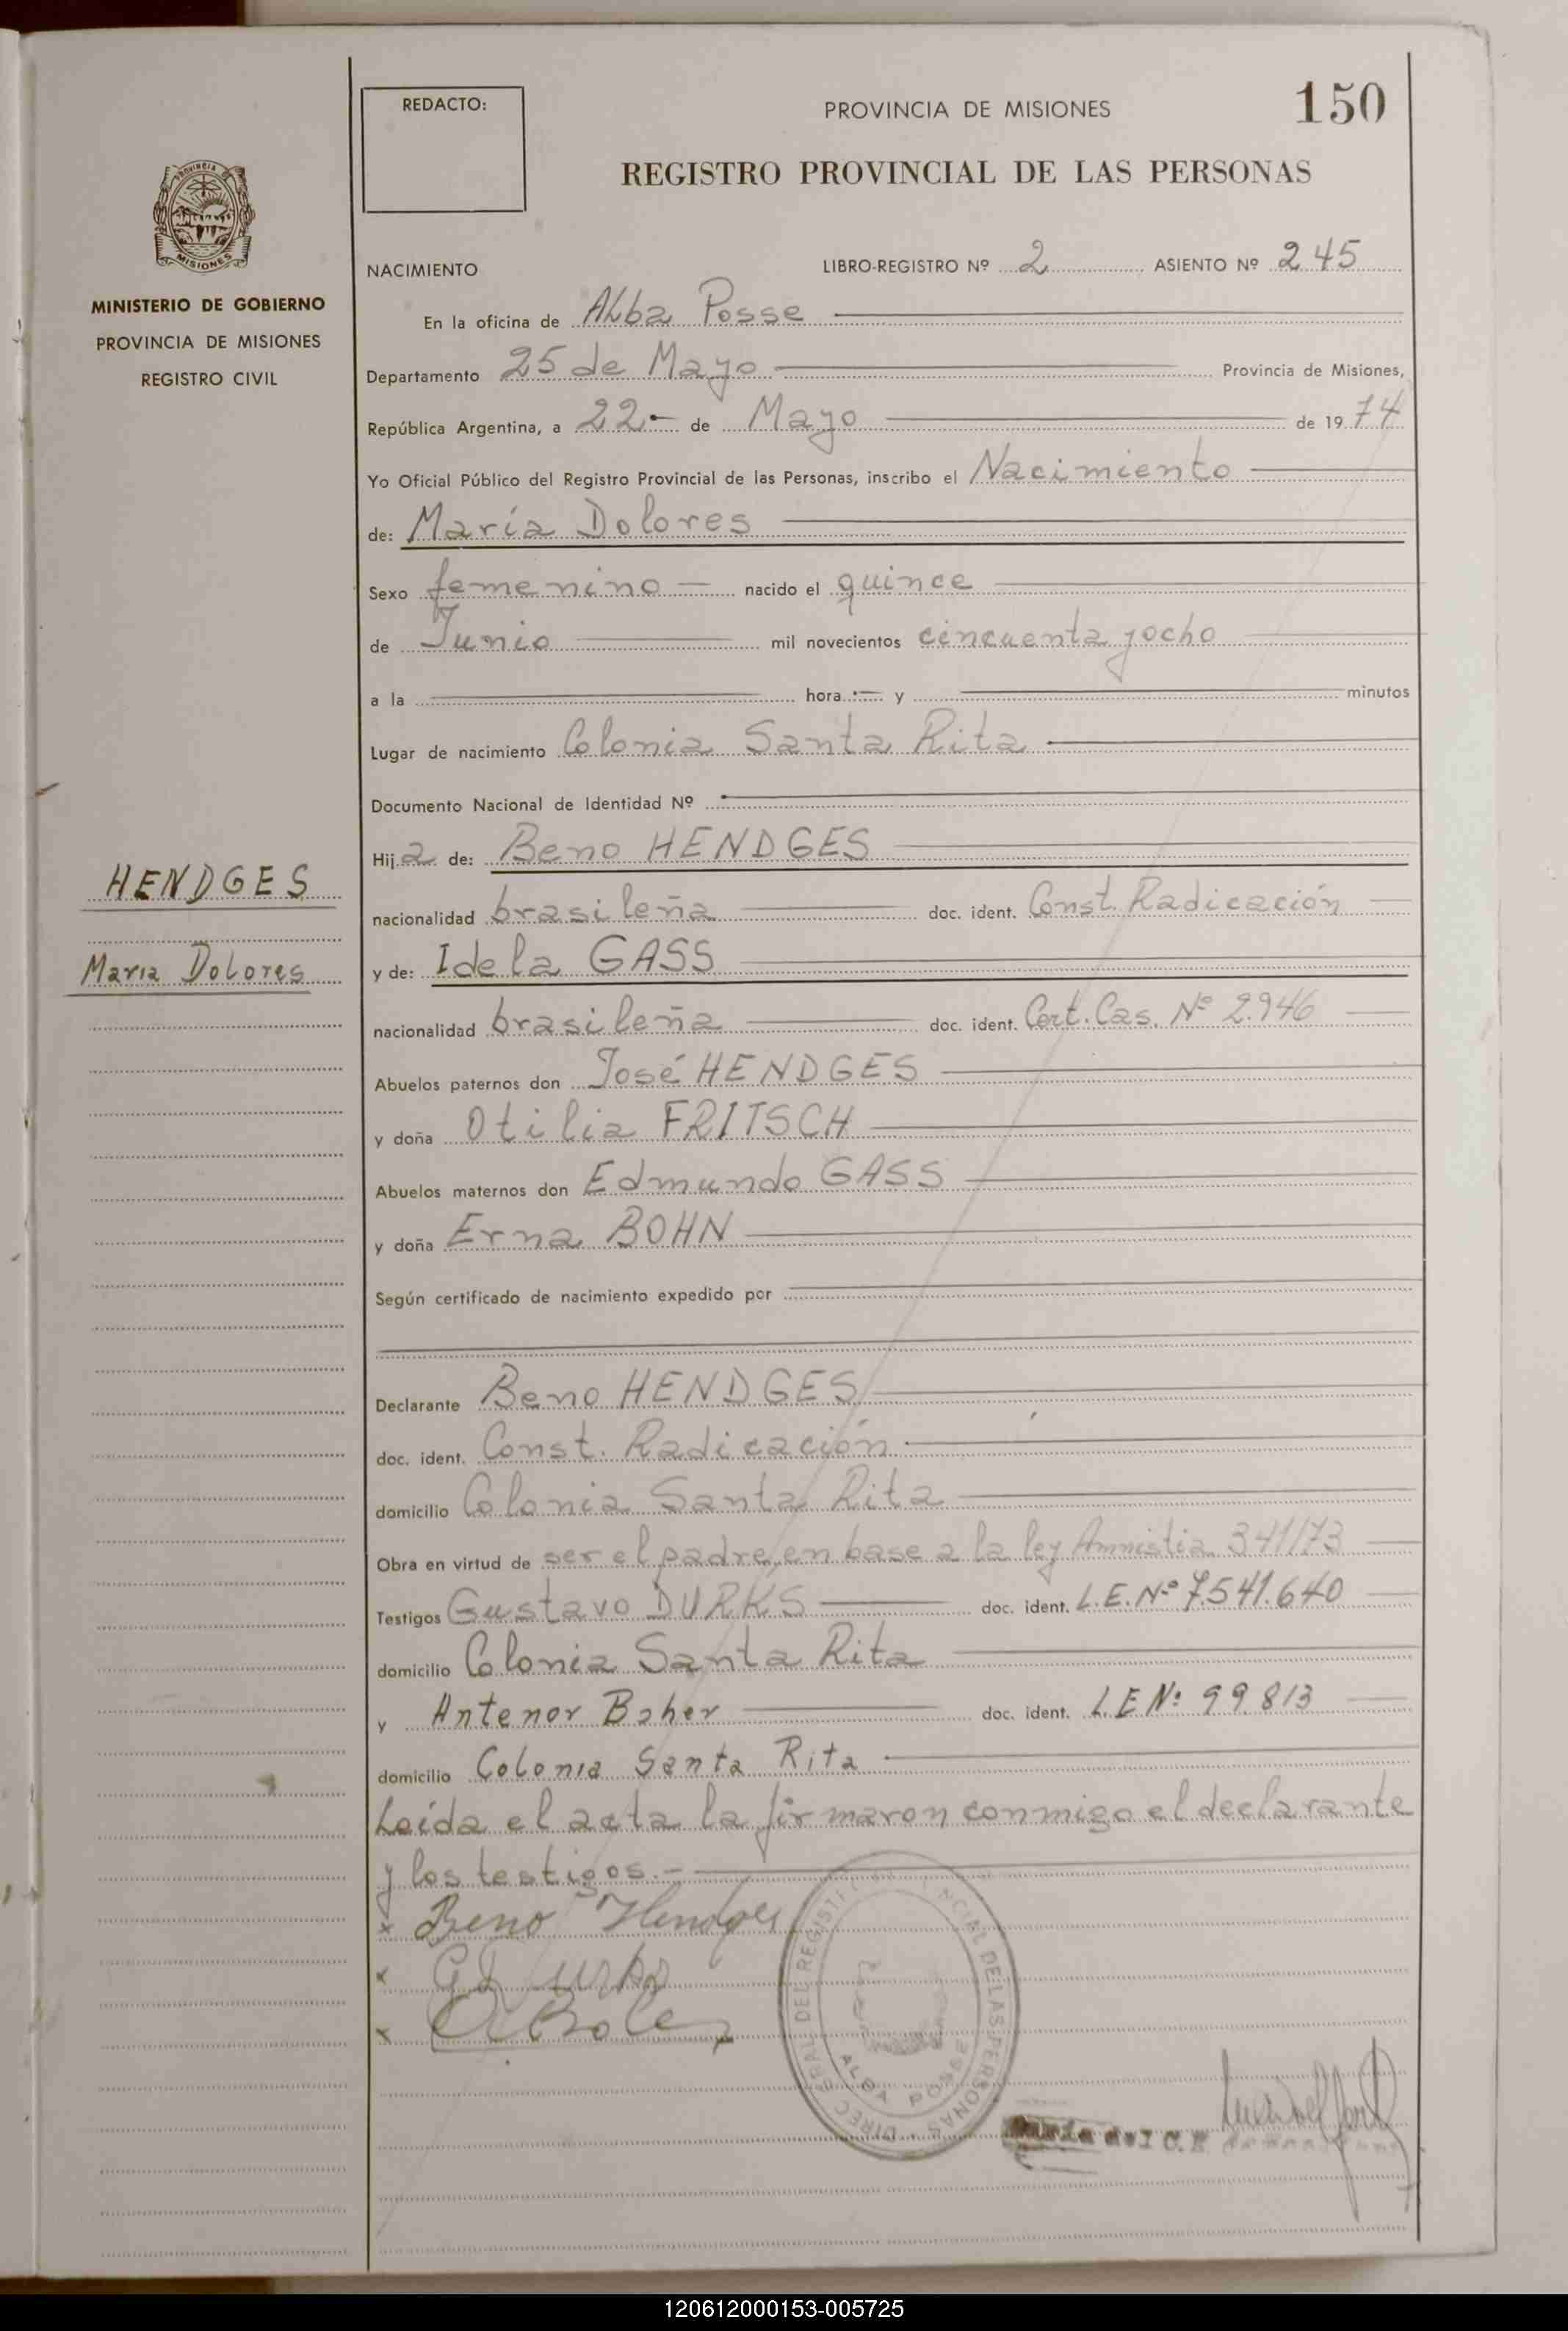 150
REDACTO:
PROVINCIA DE MISIONES
REGISTRO PROVINCIAL DE LAS PERSONAS
PROVINCIA DE
MISIONES
MINISTERIO DE GOBIERNO
PROVINCIA DE MISIONES
REGISTRO CIVIL
NACIMIENTO LIBRO-REGISTRO Nº 2 ASIENTO Nº 245
En la oficina de Alba Posse
Departamento 25 de Mayo Provincia de Misiones,
República Argentina, a 22 de Mayo de 1974
Yo Oficial Público del Registro Provincial de las Personas, inscribo el Nacimiento
de: María Dolores
Sexo femenino nacido el quince
de Junio mil novecientos cincuenta y ocho
a la hora y minutos
Lugar de nacimiento Colonia Santa Rita
Documento Nacional de Identidad Nº
Hija de: Beno HENDGES
HENDGES
nacionalidad brasileña doc. ident. Const. Radicación
Maria Dolores
y de: Idela GASS
nacionalidad brasileña doc. ident. Cert. Cas. Nº 2.946
Abuelos paternos don José HENDGES
y doña Otilia FRITSCH
Abuelos maternos don Edmundo GASS
y doña Erna BOHN
Según certificado de nacimiento expedido por
Declarante Beno HENDGES
doc. ident. Const. Radicación
domicilio Colonia Santa Rita
Obra en virtud de ser el padre, en base a la ley Amnistia 341/73
Testigos Gustavo DURKS doc. ident. L.E. Nº 7.541.640
domicilio Colonia Santa Rita
y Antenor Boher doc. ident. L.E Nº 99.813
domicilio Colonia Santa Rita
Leída el acta la firmaron conmigo el declarante
y los testigos.-
x Beno Hendges
x G Durks
x
ALBA POSSE
DE LAS PERSONAS
María del C.
120612000153-005725